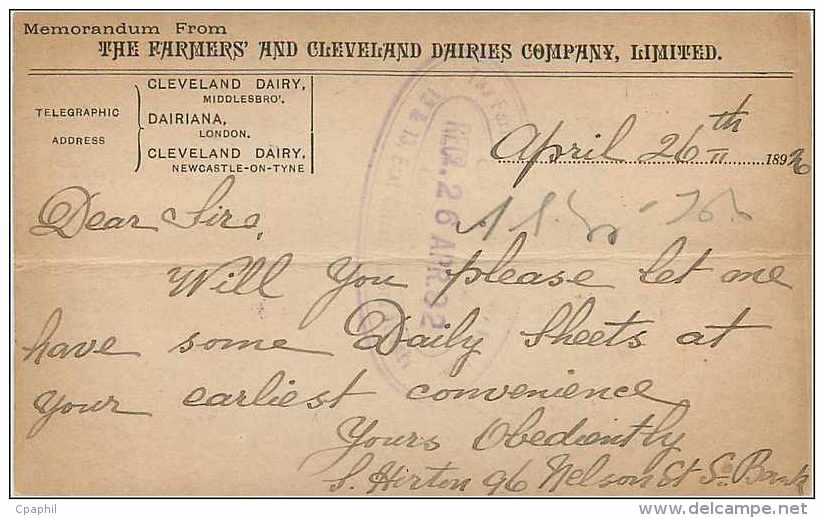 Memorandum From
THE FARMERS' AND CLEVELAND DAIRIES COMPANY, LIMITED.
TELEGRAPHIC ADDRESS
CLEVELAND DAIRY,
MIDDLESBRO'.
DAIRIANA,
LONDON.
CLEVELAND DAIRY,
NEWCASTLE-ON-TYNE
April 26th 189
RECD. 26 APR. 92
Dear Sirs,
Will you please let me
have some Daily Sheets at
your earliest convenience
Yours Obediently
S. Hirton 96 Nelson St So. Bank
Cpaphil
delcampe.net